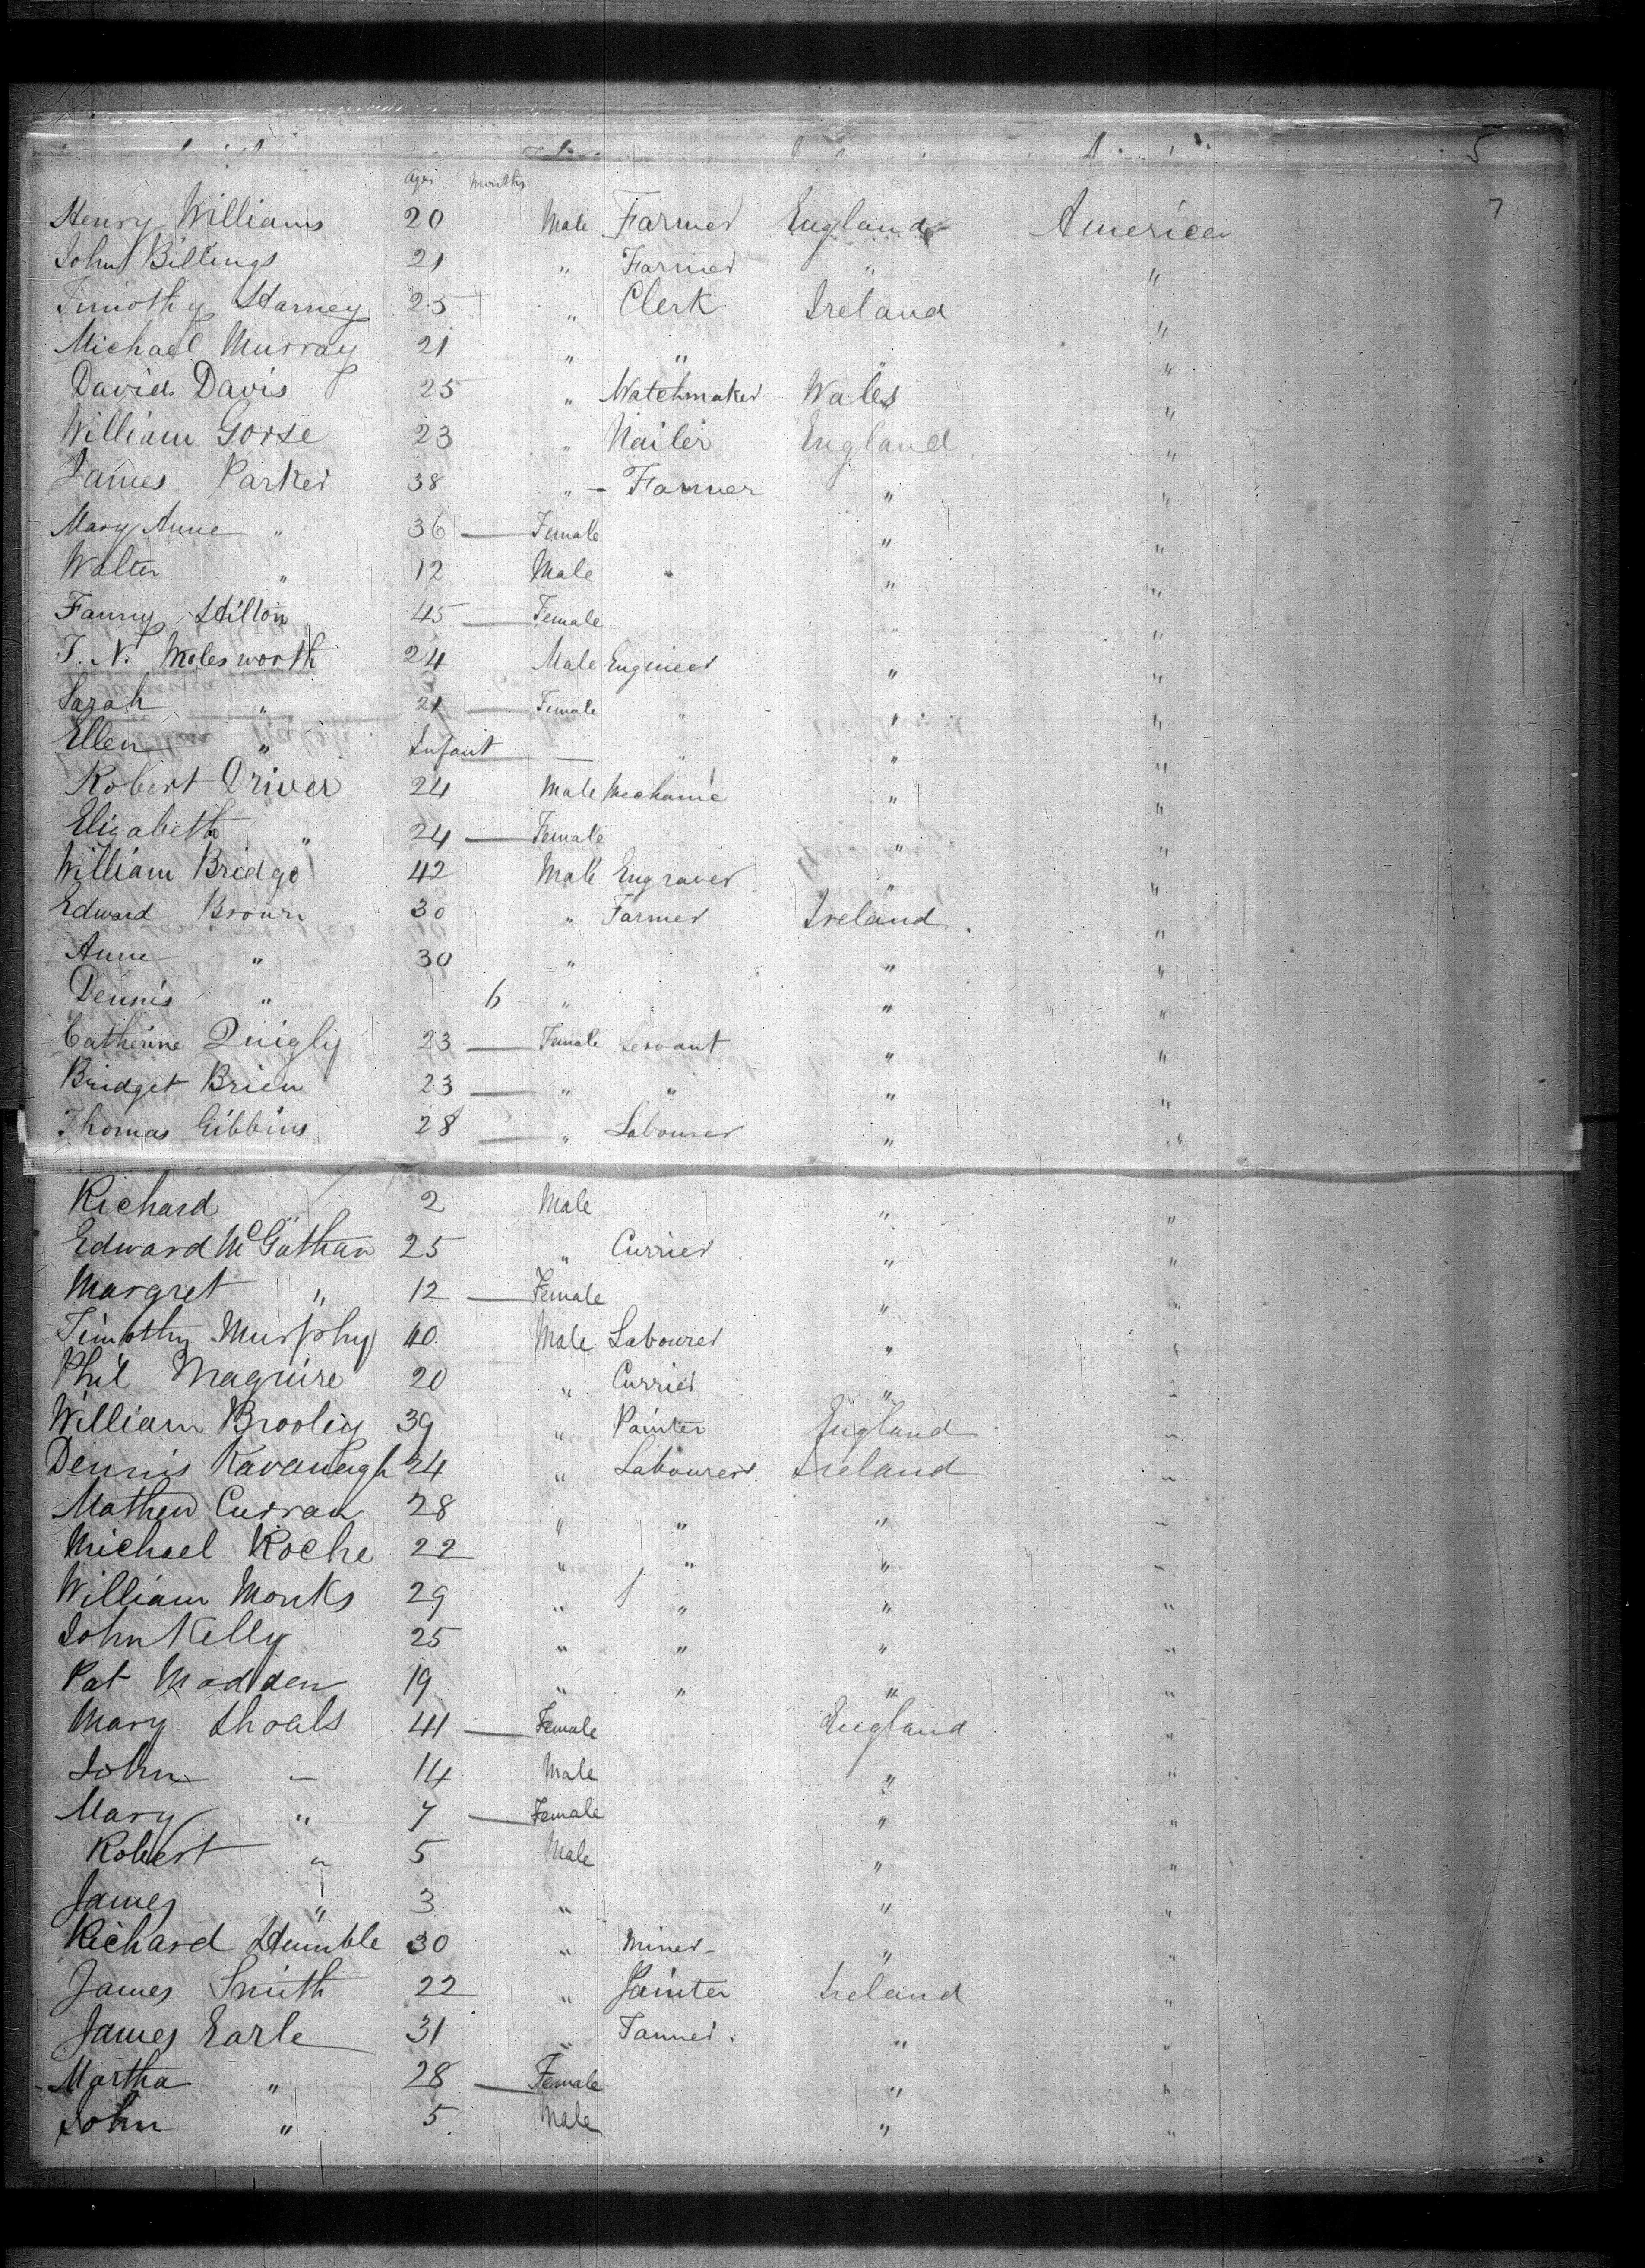 5
Age Months
7
Henry Williams 20 Male Farmer England America
John Billings 21 " Farmer " "
Timothy Harney 25 " Clerk Ireland "
Michael Murray 21 " " " "
David Davis 25 " Watchmaker Wales "
William Gorse 23 " Nailer England "
James Parker 38 " - Farmer " "
Mary Anne " 36 — Female " "
Walter " 12 Male " "
Fanny Hilton 45 — Female " "
T. N. Molesworth 24 Male Engineer " "
Sarah " 21 — Female " " "
Ellen " Infant — " " "
Robert Driver 24 Male Mechanic " "
Elizabeth " 24 — Female " "
William Bridge 42 Male Engraver " "
Edward Brown 30 " Farmer Ireland "
Anne " 30 " " "
Dennis " 6 " " "
Catherine Quigly 23 — Female Servant " "
Bridget Brien 23 — " " " "
Thomas Gibbins 28 — " Labourer " "
Richard 2 Male " "
Edward McGathan 25 " Currier " "
Margret " 12 — Female " "
Timothy Murphy 40 Male Labourer " "
Phil Maguire 20 " Currier " "
William Brooley 39 " Painter England "
Dennis Kavanagh 24 " Labourer Ireland "
Mathew Curran 28 " " " "
Michael Roche 22 " " " "
William Monks 29 " " " "
John Kelly 25 " " " "
Pat Madden 19 " " " "
Mary Shoals 41 — Female England "
John — 14 Male " "
Mary " 7 — Female " "
Robert " 5 Male " "
James " 3 " " "
Richard Humble 30 " Miner " "
James Smith 22 " Painter Ireland "
James Earle 31 " Tanner. " "
Martha " 28 — Female " "
John " 5 Male " "